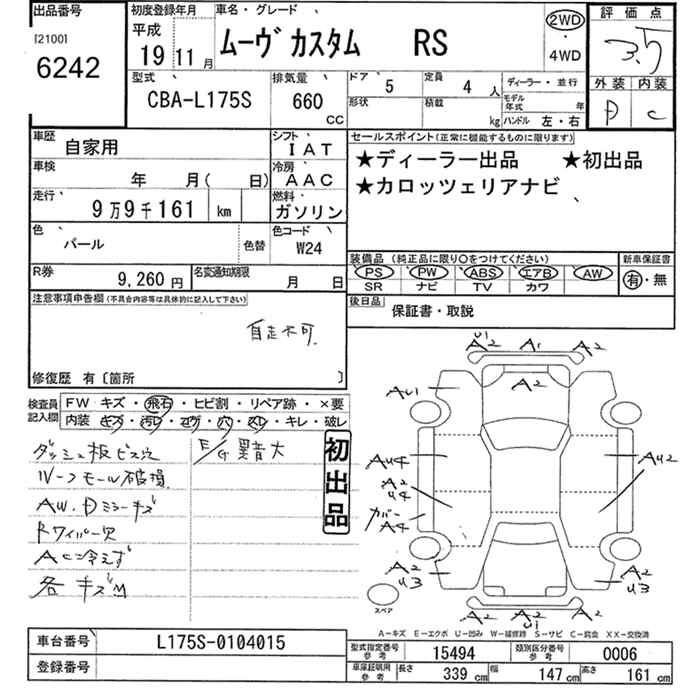 出品番号
[2100]
6242
初度登録年月
平成
19 11月
車名・グレード
ムーヴ カスタム RS
2WD
・
4WD
評価点
3.5
外装 内装
D C
型式
CBA-L175S
排気量
660
CC
ドア 5
定員 4 人
形状
積載 kg
ディーラー・並行
モデル年式 年
ハンドル 左・右
車歴 自家用
シフト IAT
車検 年 月( 日)
冷房 AAC
走行 9万9千161 km
燃料 ガソリン
色 パール
色替
色コード W24
R券 9,260円
名変通知期限 月 日
セールスポイント(正常に機能するものに限ります)
★ディーラー出品 ★初出品
★カロッツェリアナビ
装備品 (純正品に限り○をつけてください)
PS PW ABS エアB AW
SR ナビ TV カワ
新車保証書
有・無
後日品 保証書・取説
注意事項申告欄(不具合内容等は具体的に記入して下さい)
自走不可
修復歴 有〔箇所 〕
検査員記入欄
FW キズ・飛石・ヒビ割・リペア跡・×要
内装 キズ・汚レ・コゲ・穴・スレ・キレ・破レ
ダッシュ板ビス穴
ルーフモール破損
AW.Dミラーキズ
Rワイパー欠
AC冷えず
各キズM
F/G異音大
初出品
U1
A2 A1 A2
A2
AU1
AU4
A2
U4
カバー
A4
AU2
A2
U3
A2
U3
A2 A2 A2
U1
スペア
A-キズ E-エクボ U-凹み W-補修跡 S-サビ C-腐食 XX-交換済
車台番号 L175S-0104015
登録番号
型式指定番号 参考 15494
類別区分番号 参考 0006
車庫証明用 参考 長さ 339 cm 幅 147 cm 高さ 161 cm